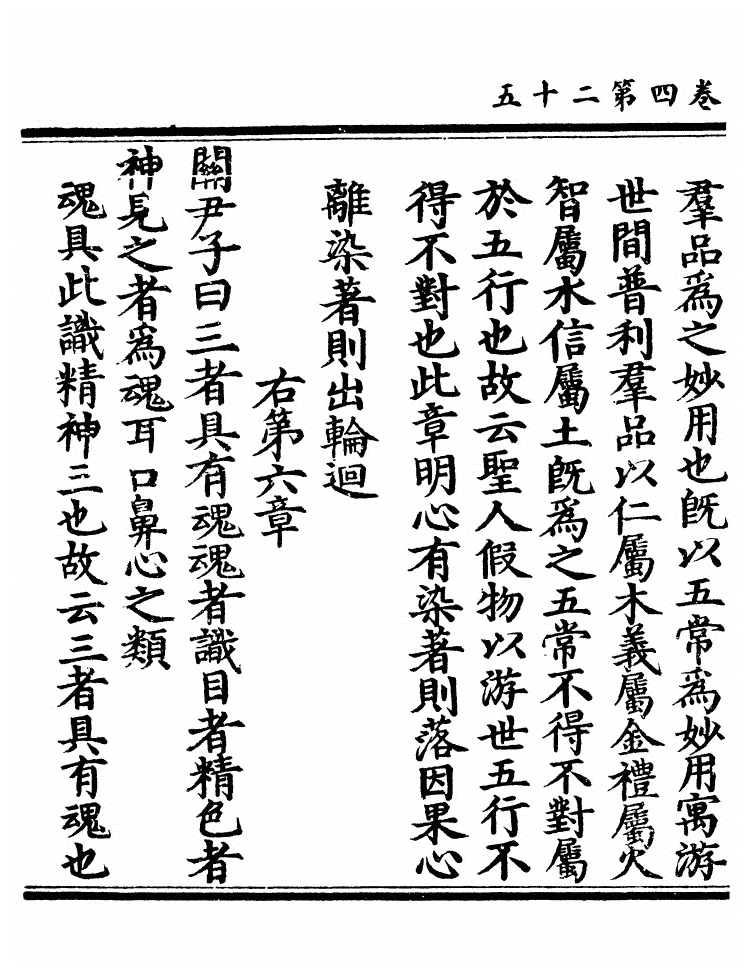 卷四第二十五
羣品爲之妙用也旣以五常爲妙用寓游
世間普利羣品以仁屬木義屬金禮屬火
智屬水信屬土旣爲之五常不得不對屬
於五行也故云聖人假物以游世五行不
得不對也此章明心有染著則落因果心
離染著則出輪迴
右第六章
關尹子曰三者具有魂魂者識目者精色者
神見之者爲魂耳口鼻心之類
魂具此識精神三也故云三者具有魂也